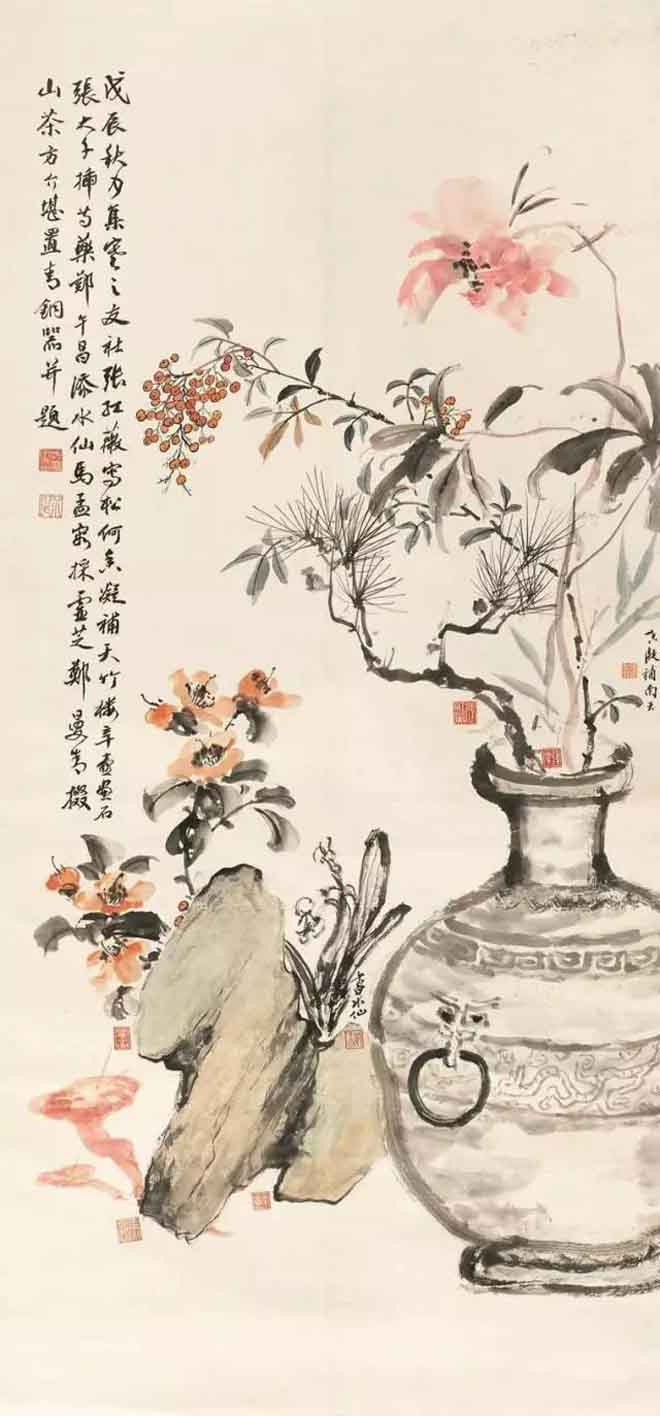 戊辰秋集寒之友社張紅薇寫松何香凝補天竹樓辛壺畫石
張大千插芍藥鄭午昌添水仙馬孟容採靈芝鄭曼青掇
山茶方介堪置青銅器并題
香凝補南天
午昌水仙